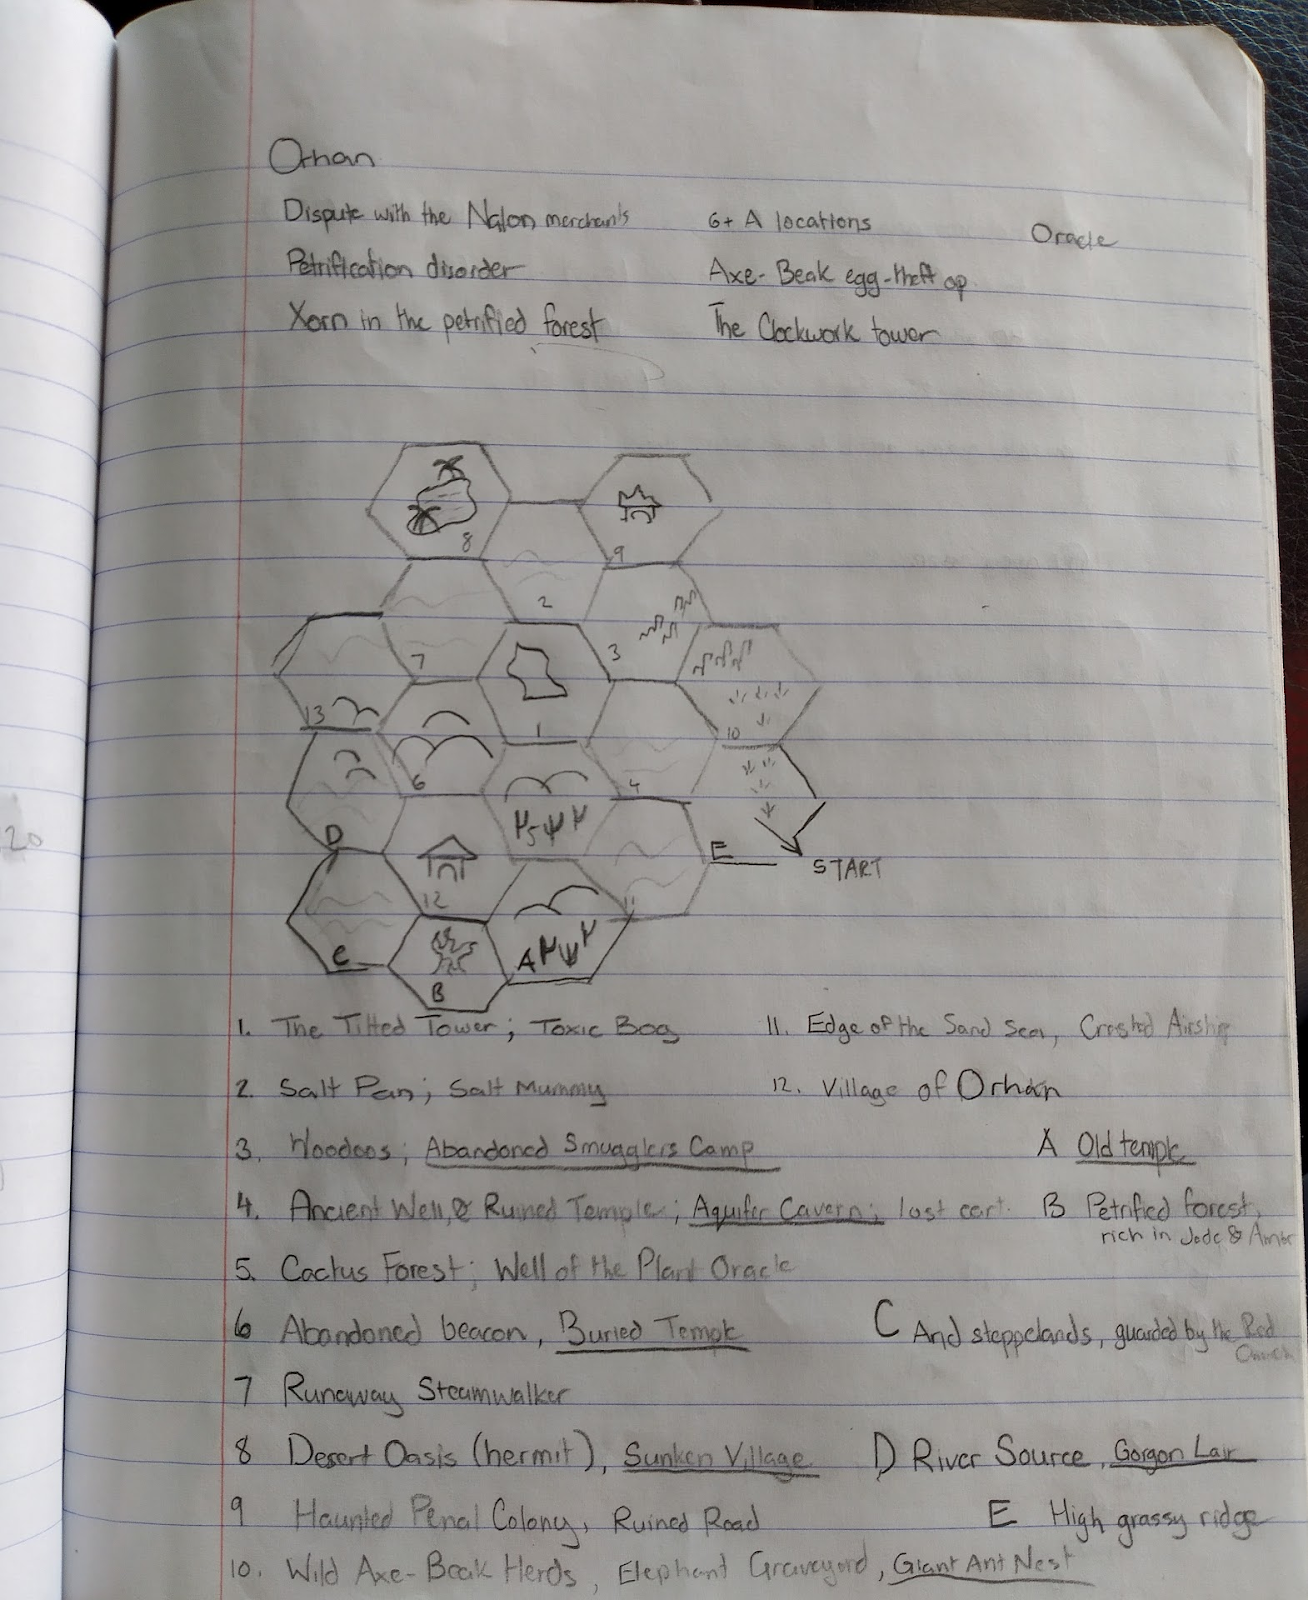 Orhan
Dispute with the Nalon merchants
6+ A locations
Oracle
Petrification disorder
Axe-Beak egg-theft op
Xorn in the petrified forest
The Clockwork tower
8
9
2
7
3
13
1
10
6
4
5
D
E
START
12
11
C
A
B
20
1. The Tilted Tower; Toxic Bog
11. Edge of the Sand Sea, Crashed Airship
2. Salt Pan; Salt Mummy
12. Village of Orhan
3. Hoodoos; Abandoned Smugglers Camp
A Old temple
4. Ancient Well, & Ruined Temple; Aquifer Cavern; lost cart.
B Petrified forest,
rich in Jade & Amber
5. Cactus Forest; Well of the Plant Oracle
6 Abandoned beacon, Buried Temple
C Arid steppelands, guarded by the Red
Church
7 Runaway Steamwalker
8 Desert Oasis (hermit), Sunken Village
D River Source, Gorgon Lair
9 Haunted Penal Colony, Ruined Road
E High grassy ridge
10. Wild Axe-Beak Herds, Elephant Graveyard, Giant Ant Nest